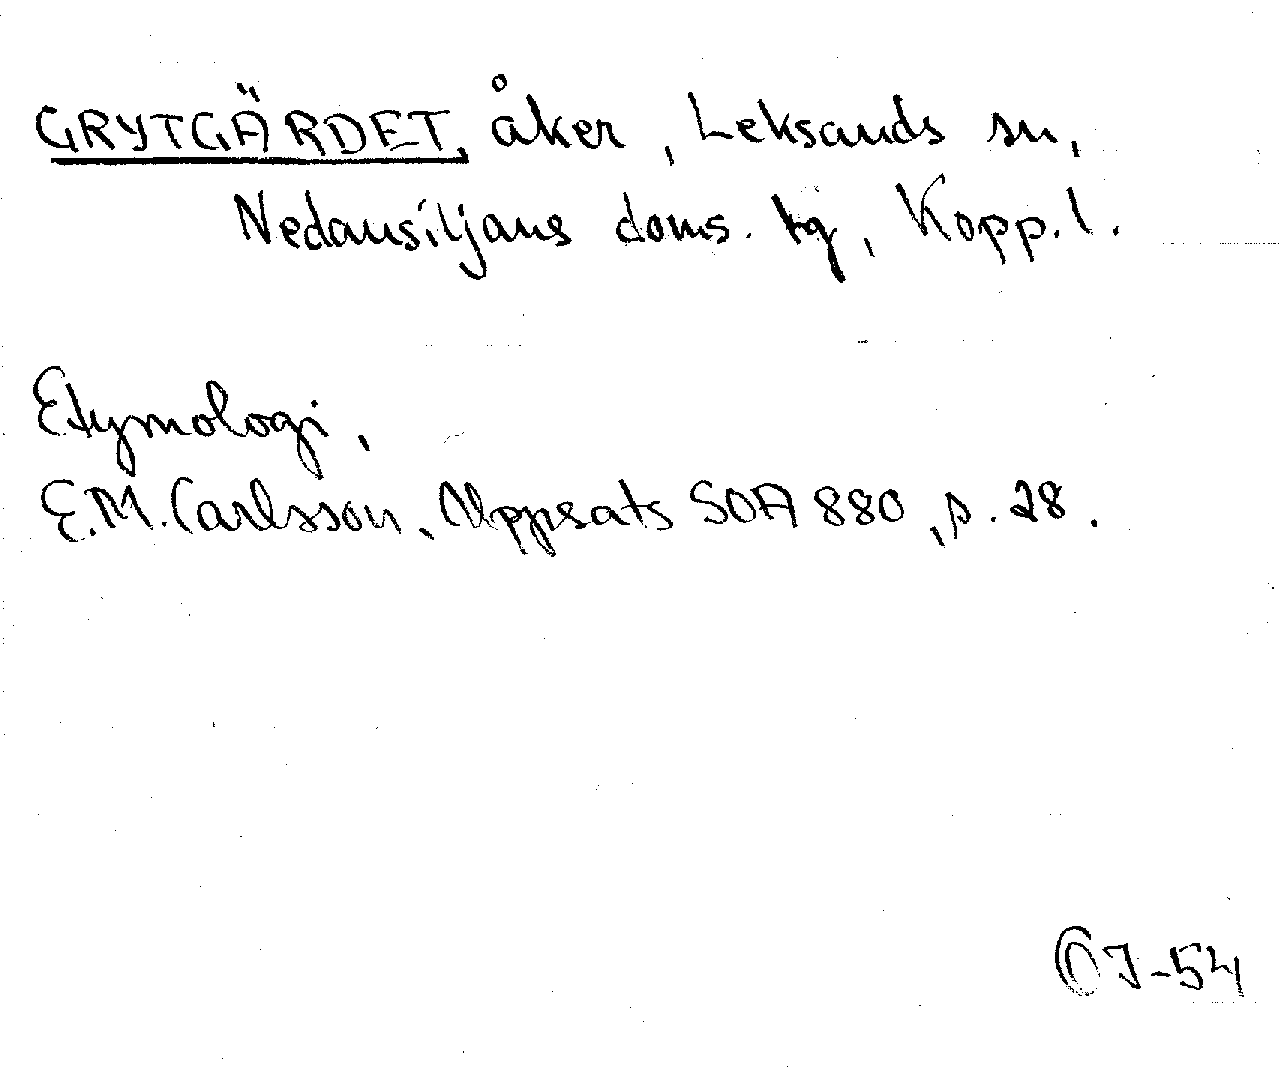 GRYTGÄRDET, åker, Leksands sn,
Nedansiljans doms. tg, Kopp. l.
Etymologi,
E.M. Carlsson, Uppsats SOA 880, s. 28.
OJ-54